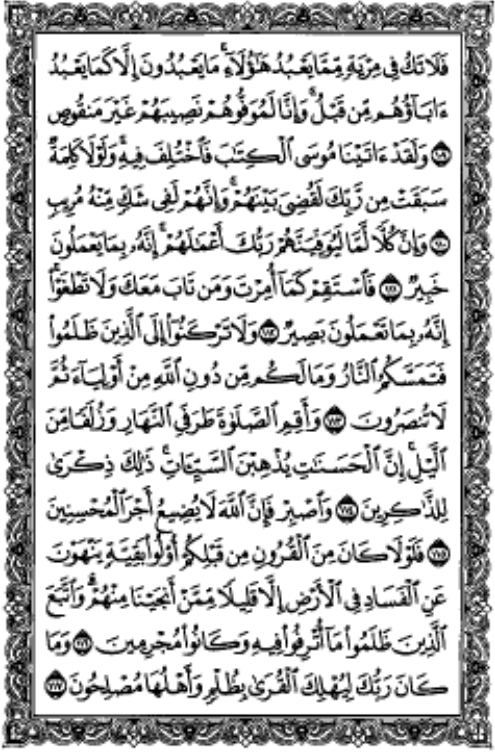 فَلَا تَكُ فِى مِرْيَةٍ مِّمَّا يَعْبُدُ هَـٰٓؤُلَآءِ ۚ مَا يَعْبُدُونَ إِلَّا كَمَا يَعْبُدُ
ءَابَآؤُهُم مِّن قَبْلُ ۚ وَإِنَّا لَمُوَفُّوهُمْ نَصِيبَهُمْ غَيْرَ مَنقُوصٍ
﴿١٠٩﴾ وَلَقَدْ ءَاتَيْنَا مُوسَى ٱلْكِتَـٰبَ فَٱخْتُلِفَ فِيهِ ۚ وَلَوْلَا كَلِمَةٌ
سَبَقَتْ مِن رَّبِّكَ لَقُضِىَ بَيْنَهُمْ ۚ وَإِنَّهُمْ لَفِى شَكٍّ مِّنْهُ مُرِيبٍ
﴿١١٠﴾ وَإِنَّ كُلًّا لَّمَّا لَيُوَفِّيَنَّهُمْ رَبُّكَ أَعْمَـٰلَهُمْ ۚ إِنَّهُۥ بِمَا يَعْمَلُونَ
خَبِيرٌ ﴿١١١﴾ فَٱسْتَقِمْ كَمَآ أُمِرْتَ وَمَن تَابَ مَعَكَ وَلَا تَطْغَوْا۟ ۚ
إِنَّهُۥ بِمَا تَعْمَلُونَ بَصِيرٌ ﴿١١٢﴾ وَلَا تَرْكَنُوٓا۟ إِلَى ٱلَّذِينَ ظَلَمُوا۟
فَتَمَسَّكُمُ ٱلنَّارُ وَمَا لَكُم مِّن دُونِ ٱللَّهِ مِنْ أَوْلِيَآءَ ثُمَّ
لَا تُنصَرُونَ ﴿١١٣﴾ وَأَقِمِ ٱلصَّلَوٰةَ طَرَفَىِ ٱلنَّهَارِ وَزُلَفًا مِّنَ
ٱلَّيْلِ ۚ إِنَّ ٱلْحَسَنَـٰتِ يُذْهِبْنَ ٱلسَّيِّـَٔاتِ ۚ ذَٰلِكَ ذِكْرَىٰ
لِلذَّٰكِرِينَ ﴿١١٤﴾ وَٱصْبِرْ فَإِنَّ ٱللَّهَ لَا يُضِيعُ أَجْرَ ٱلْمُحْسِنِينَ
﴿١١٥﴾ فَلَوْلَا كَانَ مِنَ ٱلْقُرُونِ مِن قَبْلِكُمْ أُو۟لُوا۟ بَقِيَّةٍ يَنْهَوْنَ
عَنِ ٱلْفَسَادِ فِى ٱلْأَرْضِ إِلَّا قَلِيلًا مِّمَّنْ أَنجَيْنَا مِنْهُمْ ۗ وَٱتَّبَعَ
ٱلَّذِينَ ظَلَمُوا۟ مَآ أُتْرِفُوا۟ فِيهِ وَكَانُوا۟ مُجْرِمِينَ ﴿١١٦﴾ وَمَا
كَانَ رَبُّكَ لِيُهْلِكَ ٱلْقُرَىٰ بِظُلْمٍ وَأَهْلُهَا مُصْلِحُونَ ﴿١١٧﴾